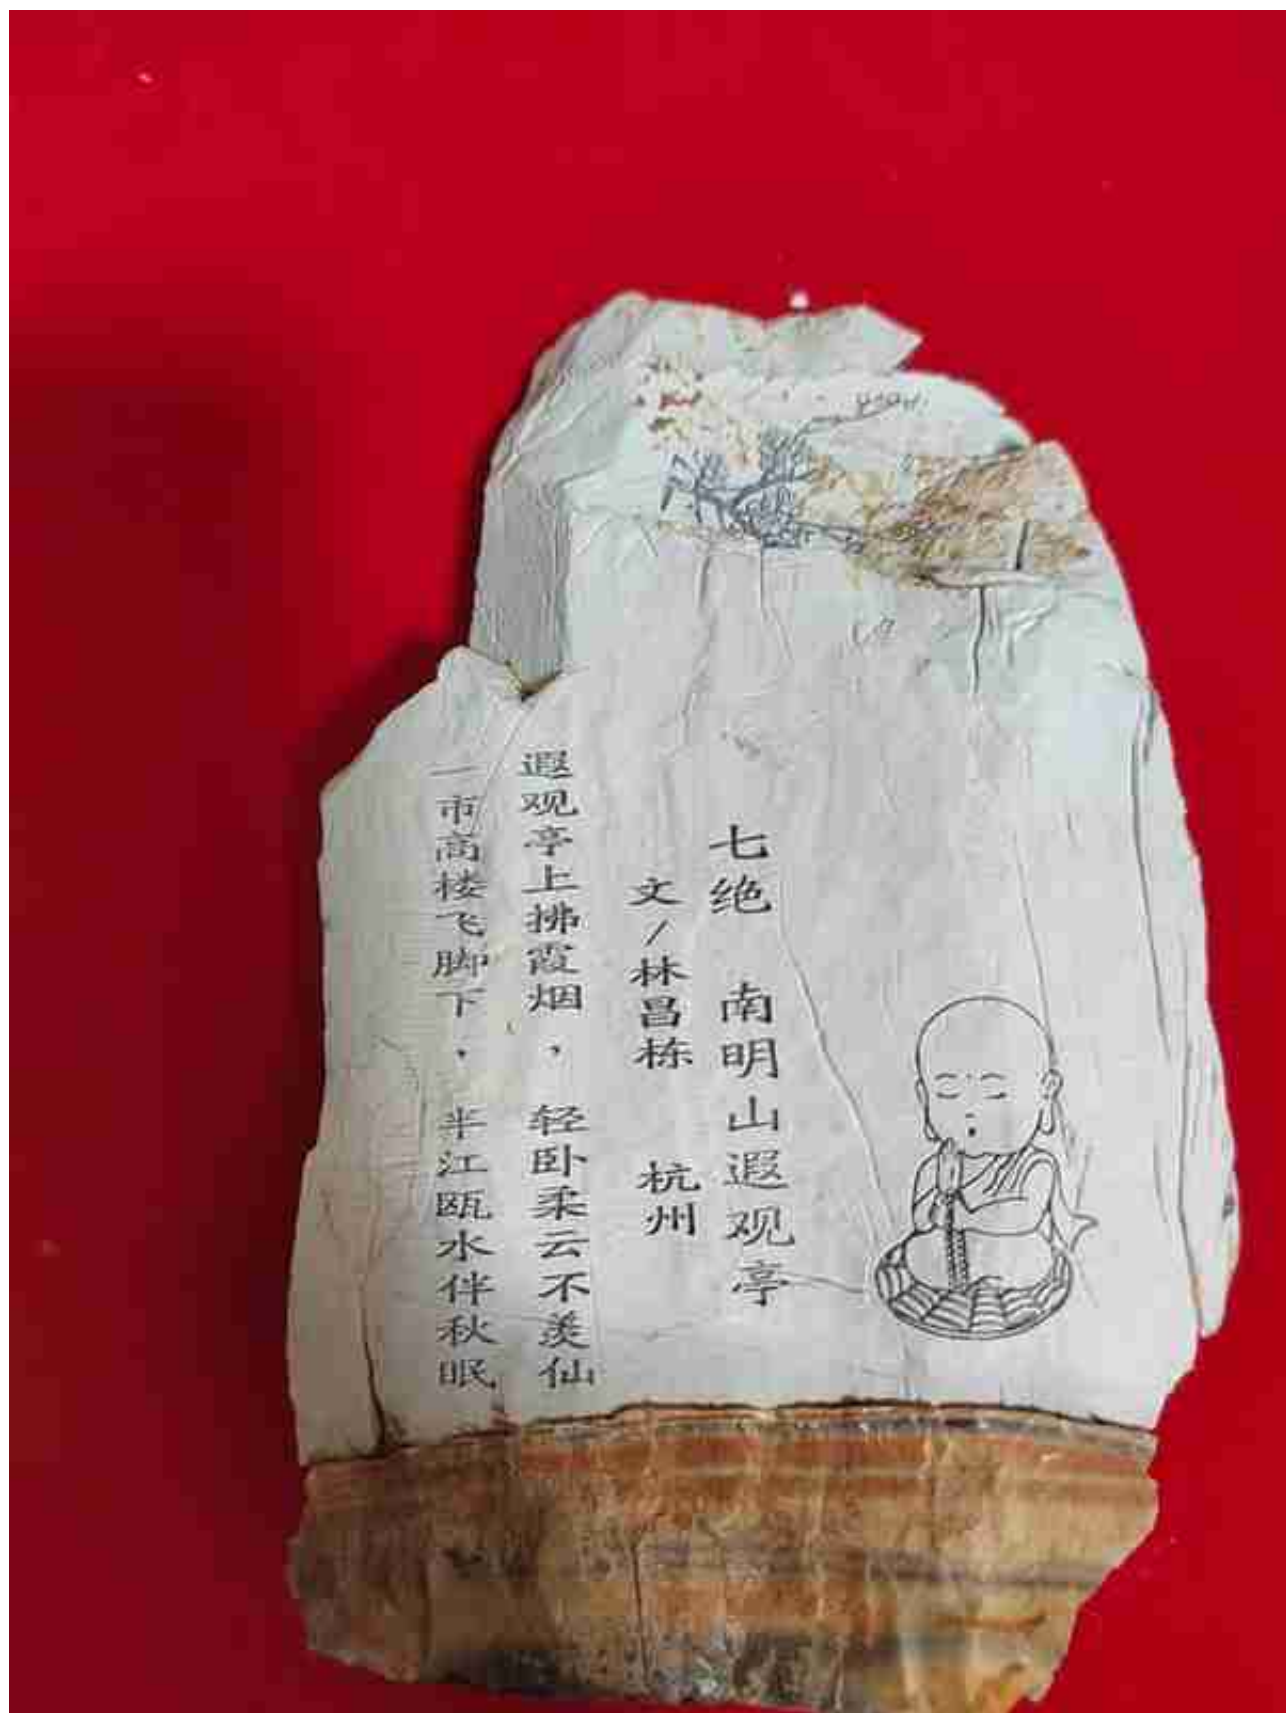 七绝 南明山遐观亭
文/林昌栋 杭州
遐观亭上拂霞烟，轻卧柔云不羡仙
一市高楼飞脚下，半江瓯水伴秋眠